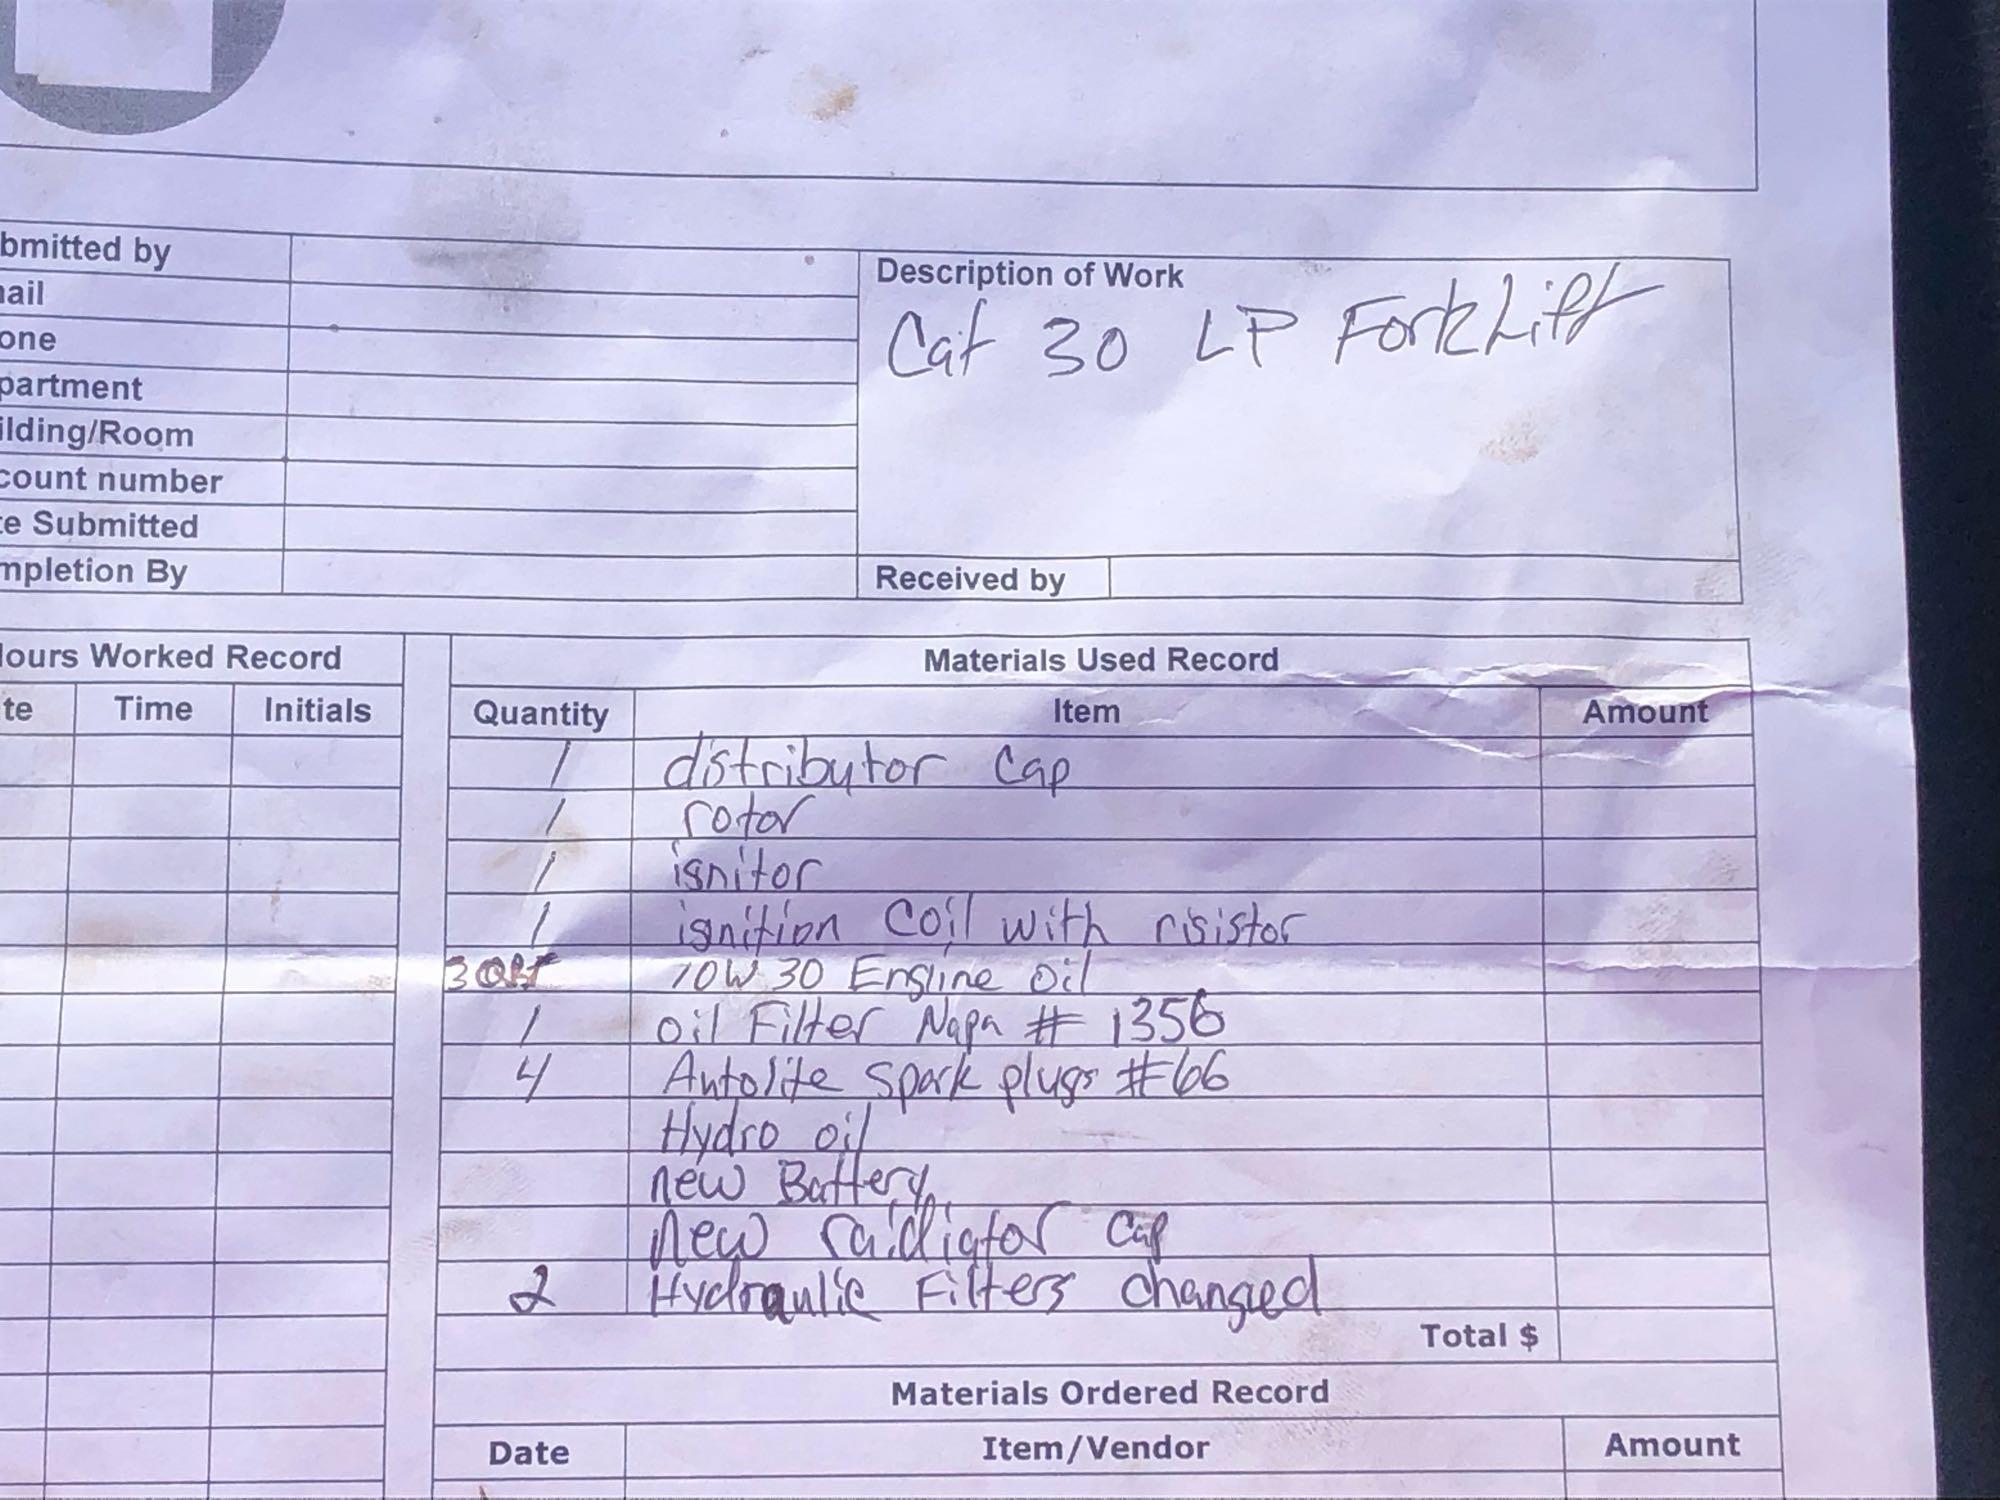 bmitted by
ail
one
partment
ilding/Room
count number
e Submitted
mpletion By
Description of Work
Cat 30 LP ForkLift
Received by
ours Worked Record
te Time Initials
Materials Used Record
Quantity Item Amount
1 distributor Cap
1 rotor
1 ignitor
1 ignition Coil with risistor
3 10W30 Engine Oil
1 oil Filter Napa # 1356
4 Autolite spark plugs #66
Hydro oil
new Battery
new raidiator Cap
2 Hydraulic Filters changed
Total $
Materials Ordered Record
Date Item/Vendor Amount